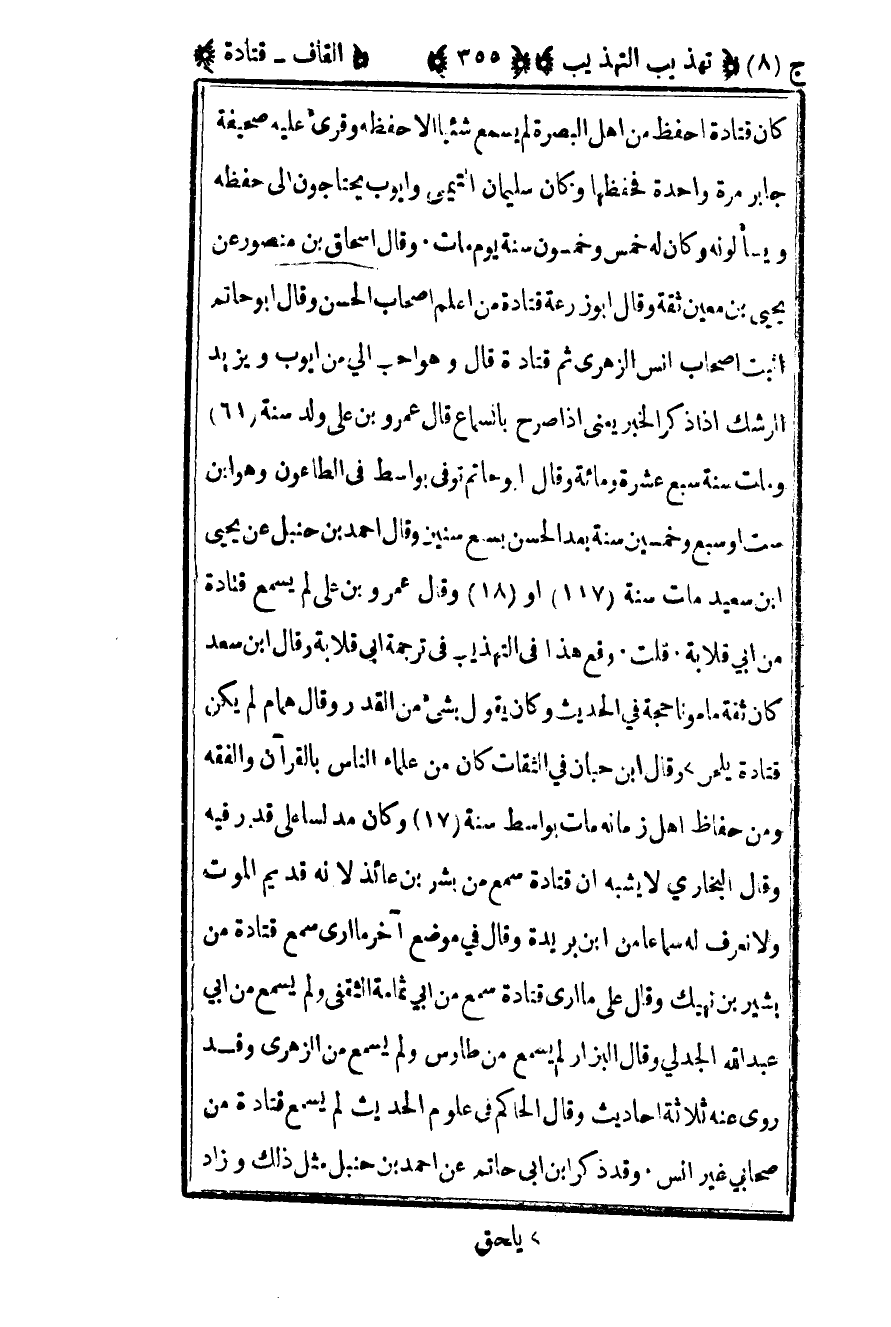 ج (٨) تهذيب التهذيب ٣٥٥ القاف ـ قتادة
كان قتادة احفظ من اهل البصرة لم يسمع شئيا الا حفظه وقرئ عليه صحيفة
جابر مرة واحدة فحفظها وكان سليمان التيمي وايوب يحتاجون الى حفظه
ويسألونه وكان له خمس وخمسون سنة يوم مات . وقال اسحاق بن منصور عن
يحيى بن معين ثقة وقال ابوزرعة قتادة من اعلم اصحاب الحسن وقال ابو حاتم
اثبت اصحاب انس الزهرى ثم قتادة قال وهو احب الي من ايوب ويزيد
الرشك اذا ذكر الخبر يعنى اذا صرح بالسماع قال عمرو بن على ولد سنة (٦١)
ومات سنة سبع عشرة ومائة وقال ابو حاتم توفى بواسط فى الطاعون وهو ابن
ست او سبع وخمسين سنة بعد الحسن بسبع سنين وقال احمد بن حنبل عن يحيى
ابن سعيد مات سنة (١١٧) او (١٨) وقال عمرو بن على لم يسمع قتادة
من ابي قلابة . قلت . وقع هذا فى التهذيب فى ترجمة ابى قلابة وقال ابن سعد
كان ثقة مامونا حجة في الحديث وكان يقول بشئ من القدر وقال همام لم يكن
قتادة يلحن > وقال ابن حبان في الثقات كان من علماء الناس بالقرآن والفقه
ومن حفاظ اهل زمانه مات بواسط سنة (١٧) وكان مدلسا على قدر فيه
وقال البخاري لا يشبه ان قتادة سمع من بشر بن عائذ لانه قديم الموت
ولا نعرف له سماعا من ابن بريدة وقال في موضع آخر ما ارى سمع قتادة من
بشير بن نهيك وقال على ما ارى قتادة سمع من ابي ثمامة الثقفى ولم يسمع من ابي
عبدالله الجدلي وقال البزار لم يسمع من طاوس ولم يسمع من الزهرى وقد
روى عنه ثلاثة احاديث وقال الحاكم فى علوم الحديث لم يسمع قتادة من
صحابي غير انس . وقد ذكر ابن ابى حاتم عن احمد بن حنبل مثل ذلك وزاد
> يلحق